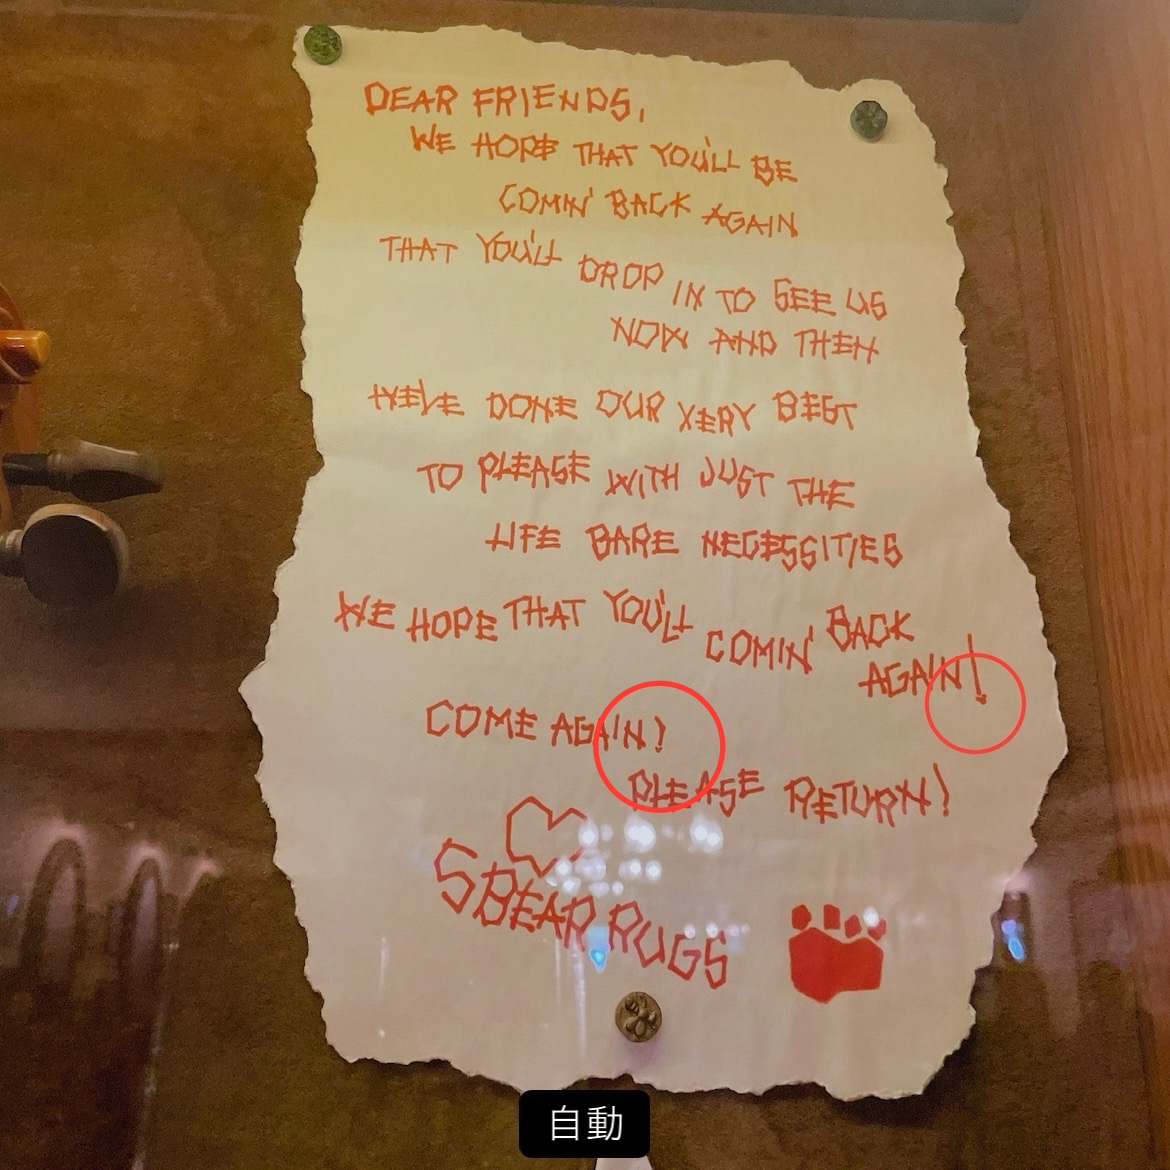 DEAR FRIENDS,
WE HOPE THAT YOU'LL BE
COMIN' BACK AGAIN
THAT YOU'LL DROP IN TO SEE US
NOW AND THEN
WE'VE DONE OUR VERY BEST
TO PLEASE WITH JUST THE
LIFE BARE NECESSITIES
WE HOPE THAT YOU'LL COMIN' BACK
AGAIN!
COME AGAIN!
PLEASE RETURN!
5 BEAR RUGS
自動